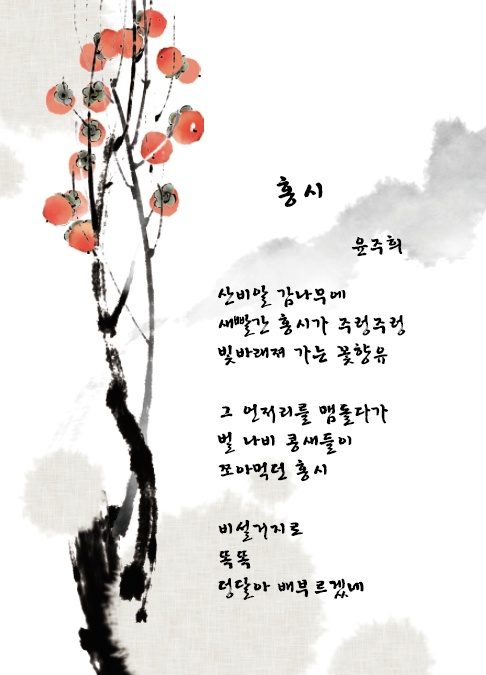 홍시
윤주희
산비알 감나무에
새빨간 홍시가 주렁주렁
빛바래져 가는 꽃향유
그 언저리를 맴돌다가
벌 나비 콩새들이
쪼아먹던 홍시
비설거지로
똑똑
덩달아 배부르겠네